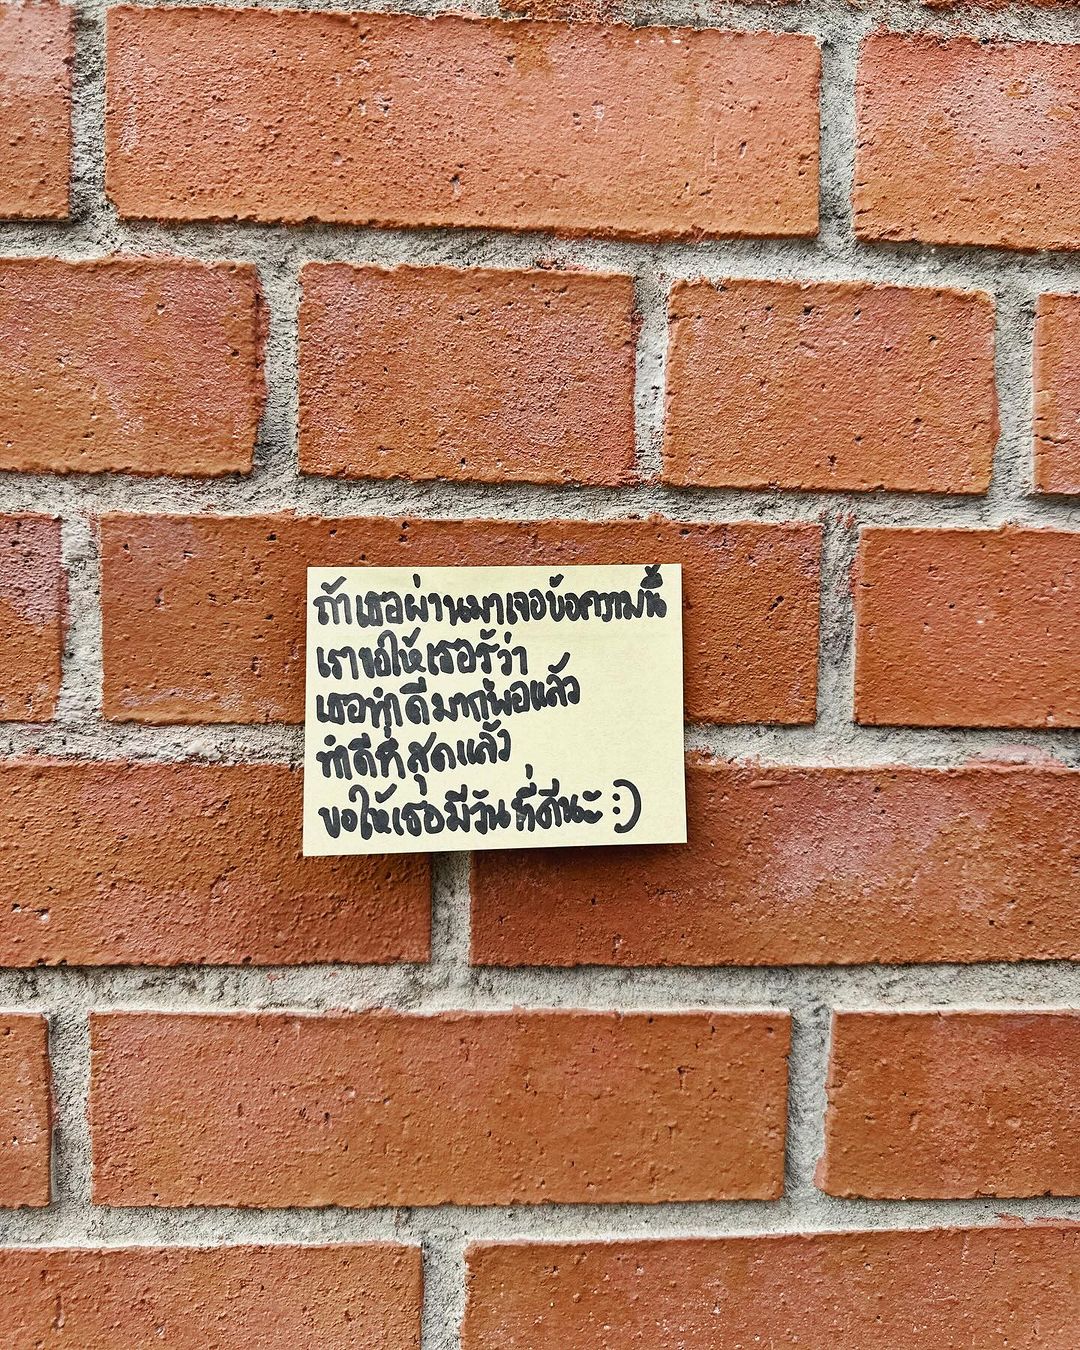 ถ้าเธอผ่านมาเจอข้อความนี้
เราขอให้เธอรู้ว่า
เธอทำดีมากพอแล้ว
ทำดีที่สุดแล้ว
ขอให้เธอมีวันที่ดีนะ :)